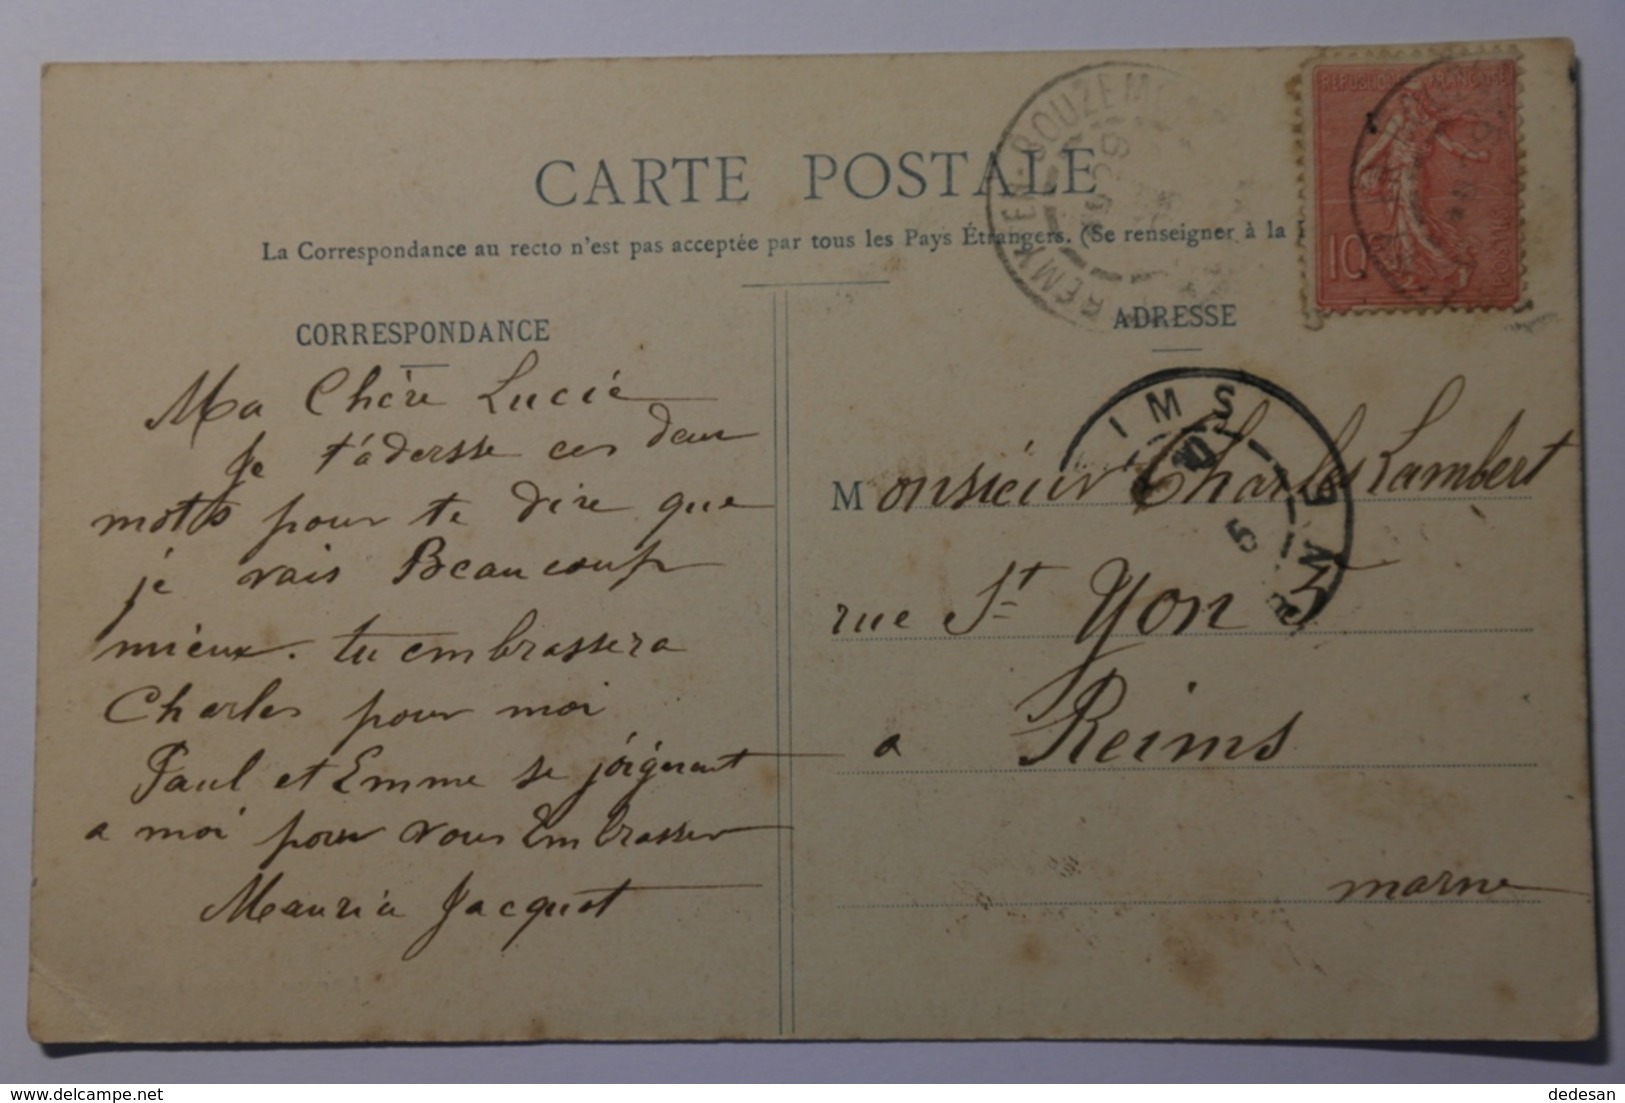 CARTE POSTALE
La Correspondance au recto n'est pas acceptée par tous les Pays Étrangers. (Se renseigner à la
CORRESPONDANCE
Ma Chère Lucie
Je t'adersse ces deux
mots pour te dire que
je vais Beaucoup
mieux. tu embrassera
Charles pour moi
Paul et Emme se joignent
a moi pour vous Embrasser
Jacquot
ADRESSE
Monsieur Charles Lambert
rue St Yon 5
a Reims
marne
REPUBLIQUE FRANÇAISE
10
POSTES
REMY-EN-BOUZEMONT
REIMS
MARNE
dedesan